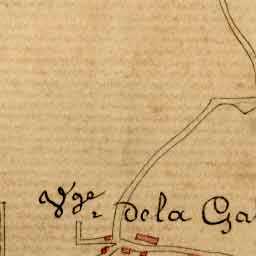 Vge de la Ga